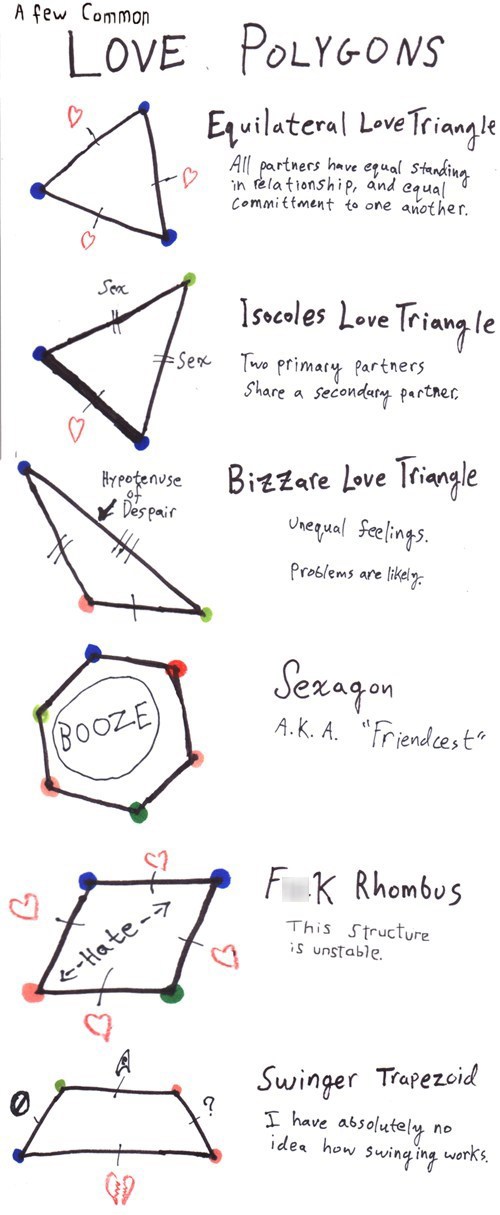 A few Common
LOVE POLYGONS
Equilateral Love Triangle
All partners have equal standing
in relationship, and equal
committment to one another.
Sex
Sex
Isocoles Love Triangle
Two primary partners
Share a secondary partner.
Hypotenuse
of
Despair
Bizzare Love Triangle
Unequal feelings.
Problems are likely.
BOOZE
Sexagon
A.K.A. "Friendcest"
Hate
F K Rhombus
This Structure
is unstable.
?
Swinger Trapezoid
I have absolutely no
idea how swinging works.